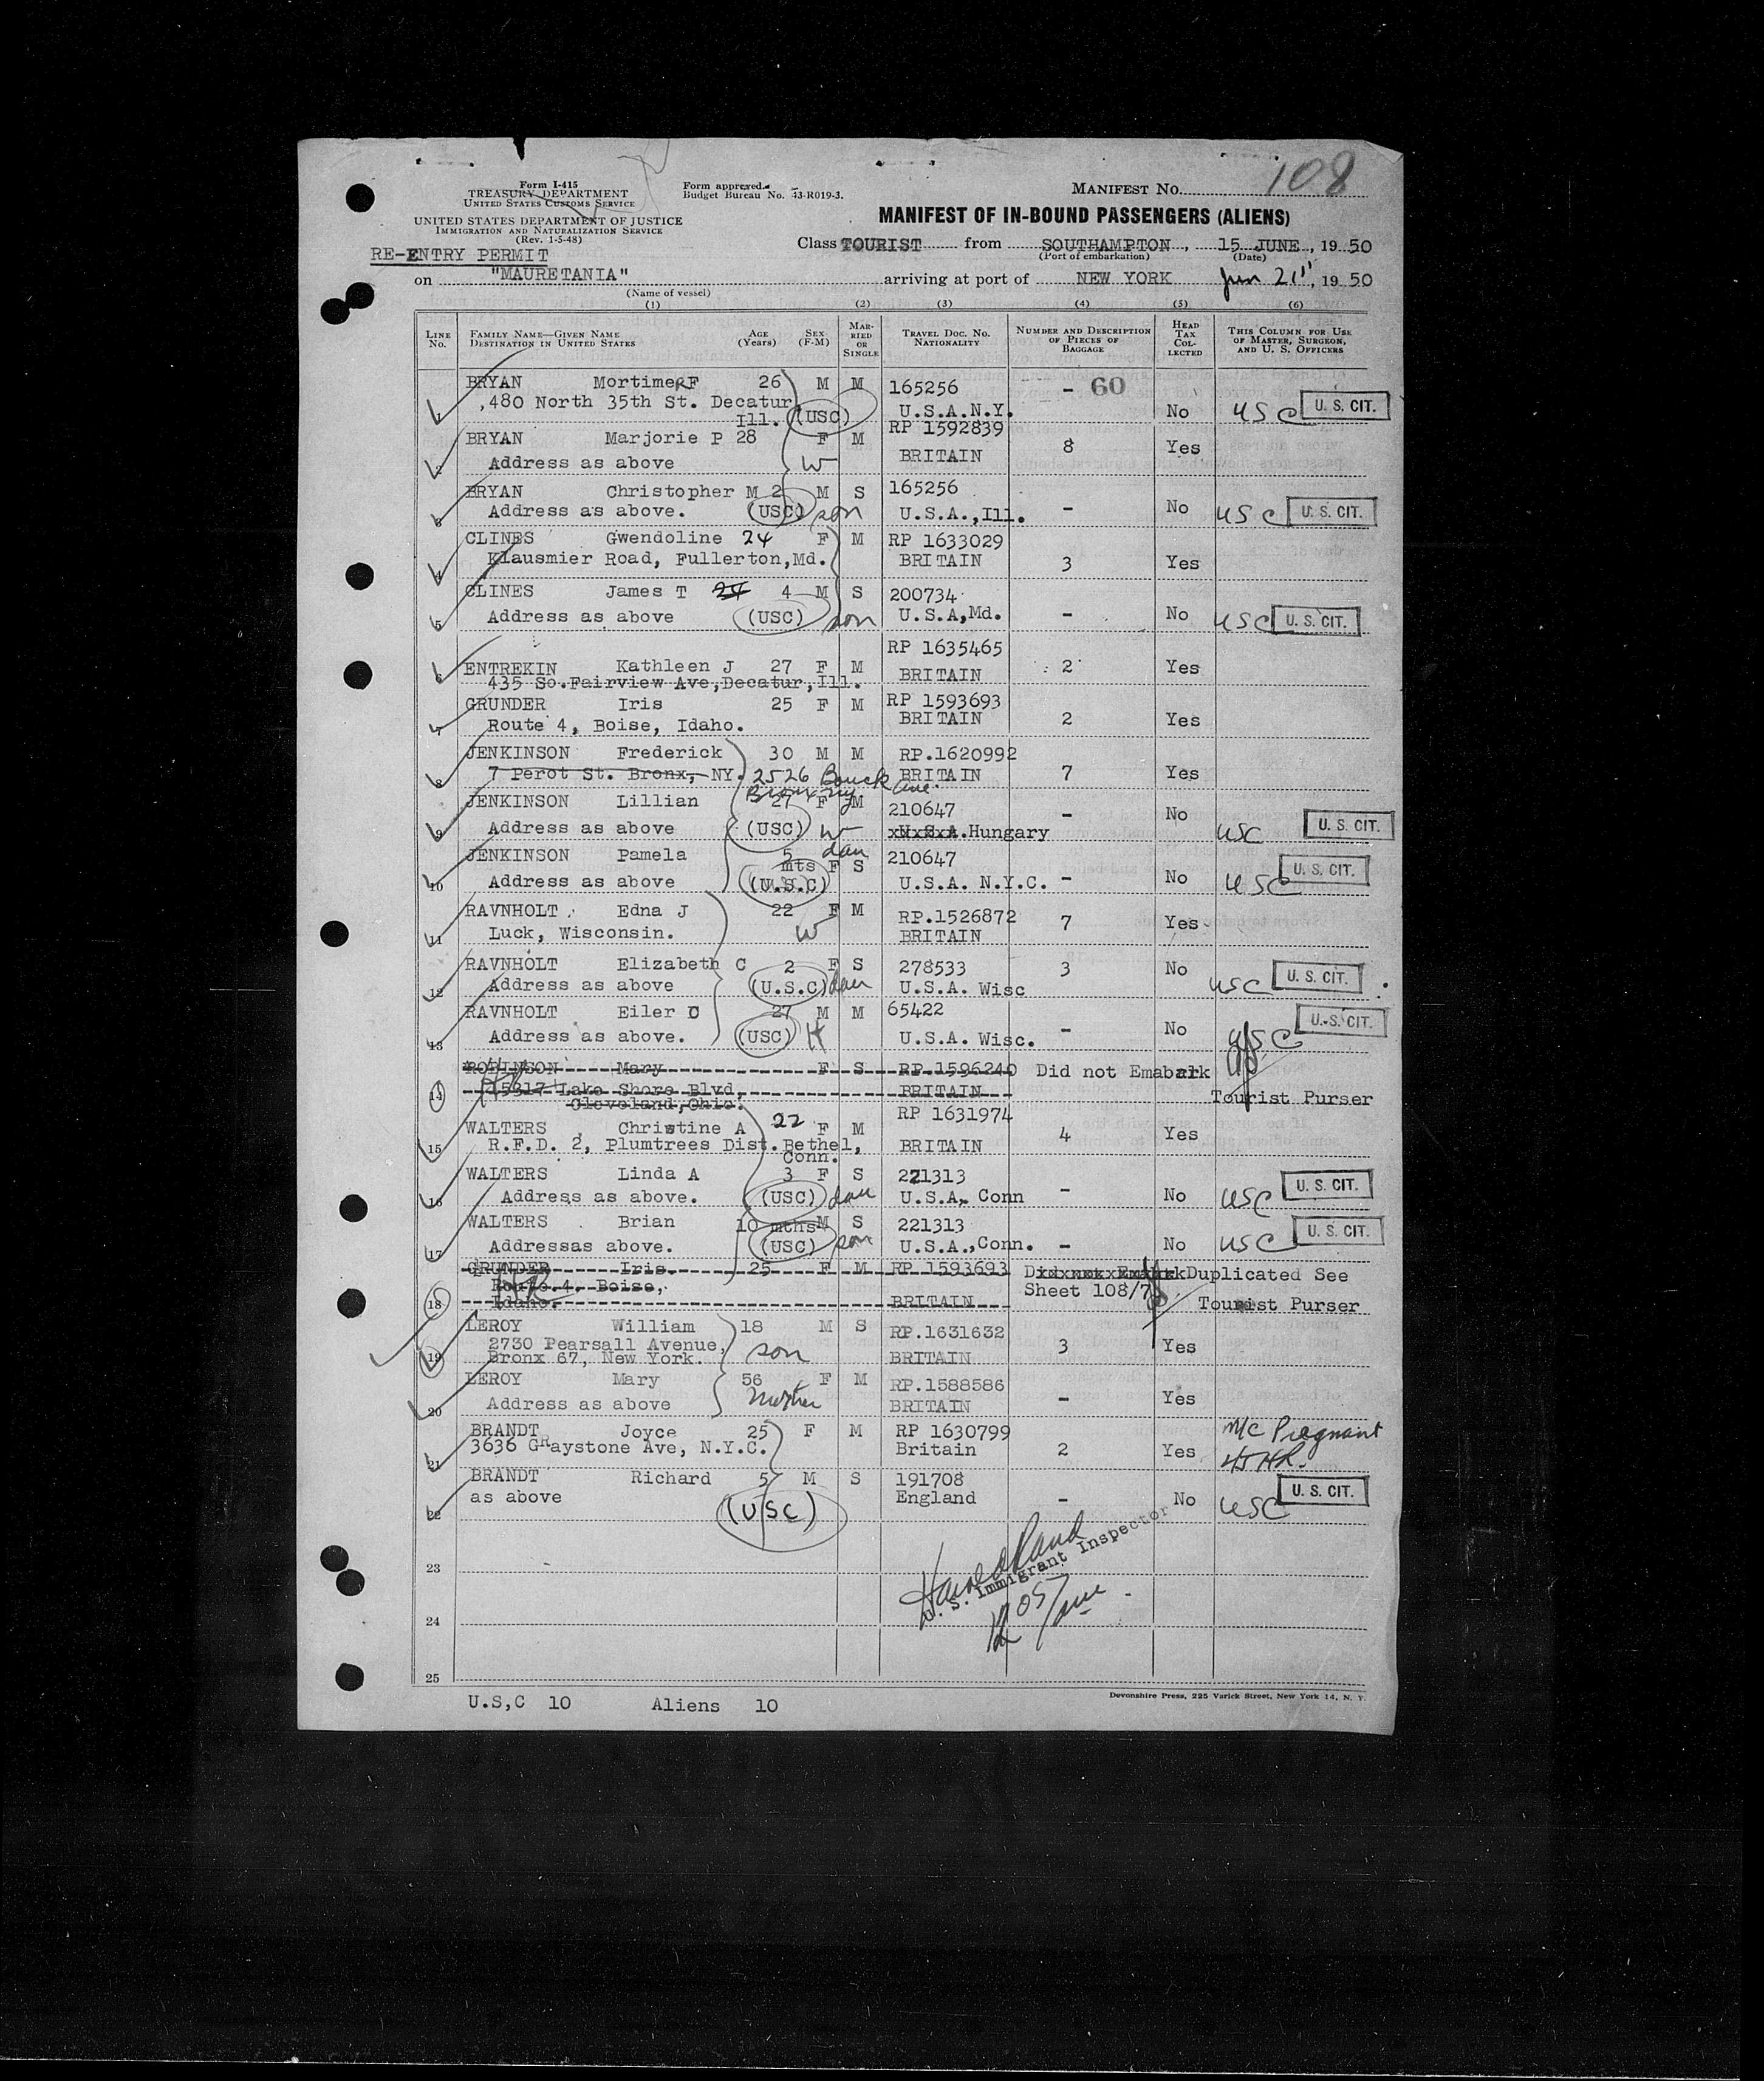 108
Form I-415
TREASURY DEPARTMENT
UNITED STATES CUSTOMS SERVICE
UNITED STATES DEPARTMENT OF JUSTICE
IMMIGRATION AND NATURALIZATION SERVICE
(Rev. 1-5-48)
Form approved.
Budget Bureau No. 43-R019-3.
MANIFEST NO.
MANIFEST OF IN-BOUND PASSENGERS (ALIENS)
Class TOURIST from SOUTHAMPTON, 15 JUNE, 19 50
(Port of embarkation) (Date)
RE-ENTRY PERMIT
on "MAURETANIA" arriving at port of NEW YORK Jun 21, 19 50
(Name of vessel)
(1) (2) (3) (4) (5) (6)
LINE NO. FAMILY NAME—GIVEN NAME DESTINATION IN UNITED STATES AGE (Years) SEX (F-M) MARRIED OR SINGLE TRAVEL DOC. NO. NATIONALITY NUMBER AND DESCRIPTION OF PIECES OF BAGGAGE HEAD TAX COLLECTED THIS COLUMN FOR USE OF MASTER, SURGEON, AND U. S. OFFICERS
1 BRYAN MortimeR F 26 M M 165256 - 60
,480 North 35th St. Decatur Ill. (USC) U.S.A.N.Y. No USC U. S. CIT.
2 BRYAN Marjorie P 28 F M RP 1592839 8 Yes
Address as above W BRITAIN
3 BRYAN Christopher M 2 M S 165256
Address as above. (USC) son U.S.A.,Ill. - No USC U. S. CIT.
4 CLINES Gwendoline 24 F M RP 1633029
Klausmier Road, Fullerton,Md. BRITAIN 3 Yes
5 CLINES James T 24 4 M S 200734
Address as above (USC) son U.S.A,Md. - No USC U. S. CIT.
6 ENTREKIN Kathleen J 27 F M RP 1635465 2 Yes
435 So.Fairview Ave,Decatur,Ill. BRITAIN
7 GRUNDER Iris 25 F M RP 1593693
Route 4, Boise, Idaho. BRITAIN 2 Yes
8 JENKINSON Frederick 30 M M RP.1620992
7 Perot St. Bronx, NY. 2526 Bouck Ave BRITAIN 7 Yes
Bronx NY
9 JENKINSON Lillian 27 F M 210647 - No
Address as above (USC) W xUxSxAx.Hungary USC U. S. CIT.
10 JENKINSON Pamela 5 mts F S dau 210647
Address as above (U.S.C) U.S.A. N.Y.C. - No USC U. S. CIT.
11 RAVNHOLT Edna J 22 F M RP.1526872 7 Yes
Luck, Wisconsin. W BRITAIN
12 RAVNHOLT Elizabeth C 2 F S 278533 3 No
Address as above (U.S.C) dau U.S.A. Wisc USC U. S. CIT.
13 RAVNHOLT Eiler C 27 M M 65422
Address as above. (USC) H U.S.A. Wisc. - No USC U. S. CIT.
14 ROBINSON Mary F S RP 1596240 Did not Emabark
15317 Lake Shore Blvd, BRITAIN Tourist Purser
Cleveland,Ohio.
15 WALTERS Christine A 22 F M RP 1631974 4 Yes
R.F.D. 2, Plumtrees Dist. Bethel, Conn. BRITAIN
16 WALTERS Linda A 3 F S 221313
Address as above. (USC) dau U.S.A, Conn - No USC U. S. CIT.
17 WALTERS Brian 10 mths M S 221313
Addressas above. (USC) son U.S.A.,Conn. - No USC U. S. CIT.
18 GRUNDER Iris. 25 F M RP 1593693 Duplicated See
Route 4, Boise, Sheet 108/7
Idaho. BRITAIN Tourist Purser
19 LEROY William 18 M S RP.1631632
2730 Pearsall Avenue, son 3 Yes
Bronx 67, New York. BRITAIN
20 LEROY Mary 56 F M RP.1588586
Address as above Mother BRITAIN - Yes
21 BRANDT Joyce 25 F M RP 1630799 M/C Pregnant
3636 GRaystone Ave, N.Y.C. Britain 2 Yes
22 BRANDT Richard 5 M S 191708
as above (USC) England - No USC U. S. CIT.
23
24
25
U. S. Immigrant Inspector
U.S,C 10 Aliens 10
Devonshire Press, 225 Varick Street, New York 14, N. Y.